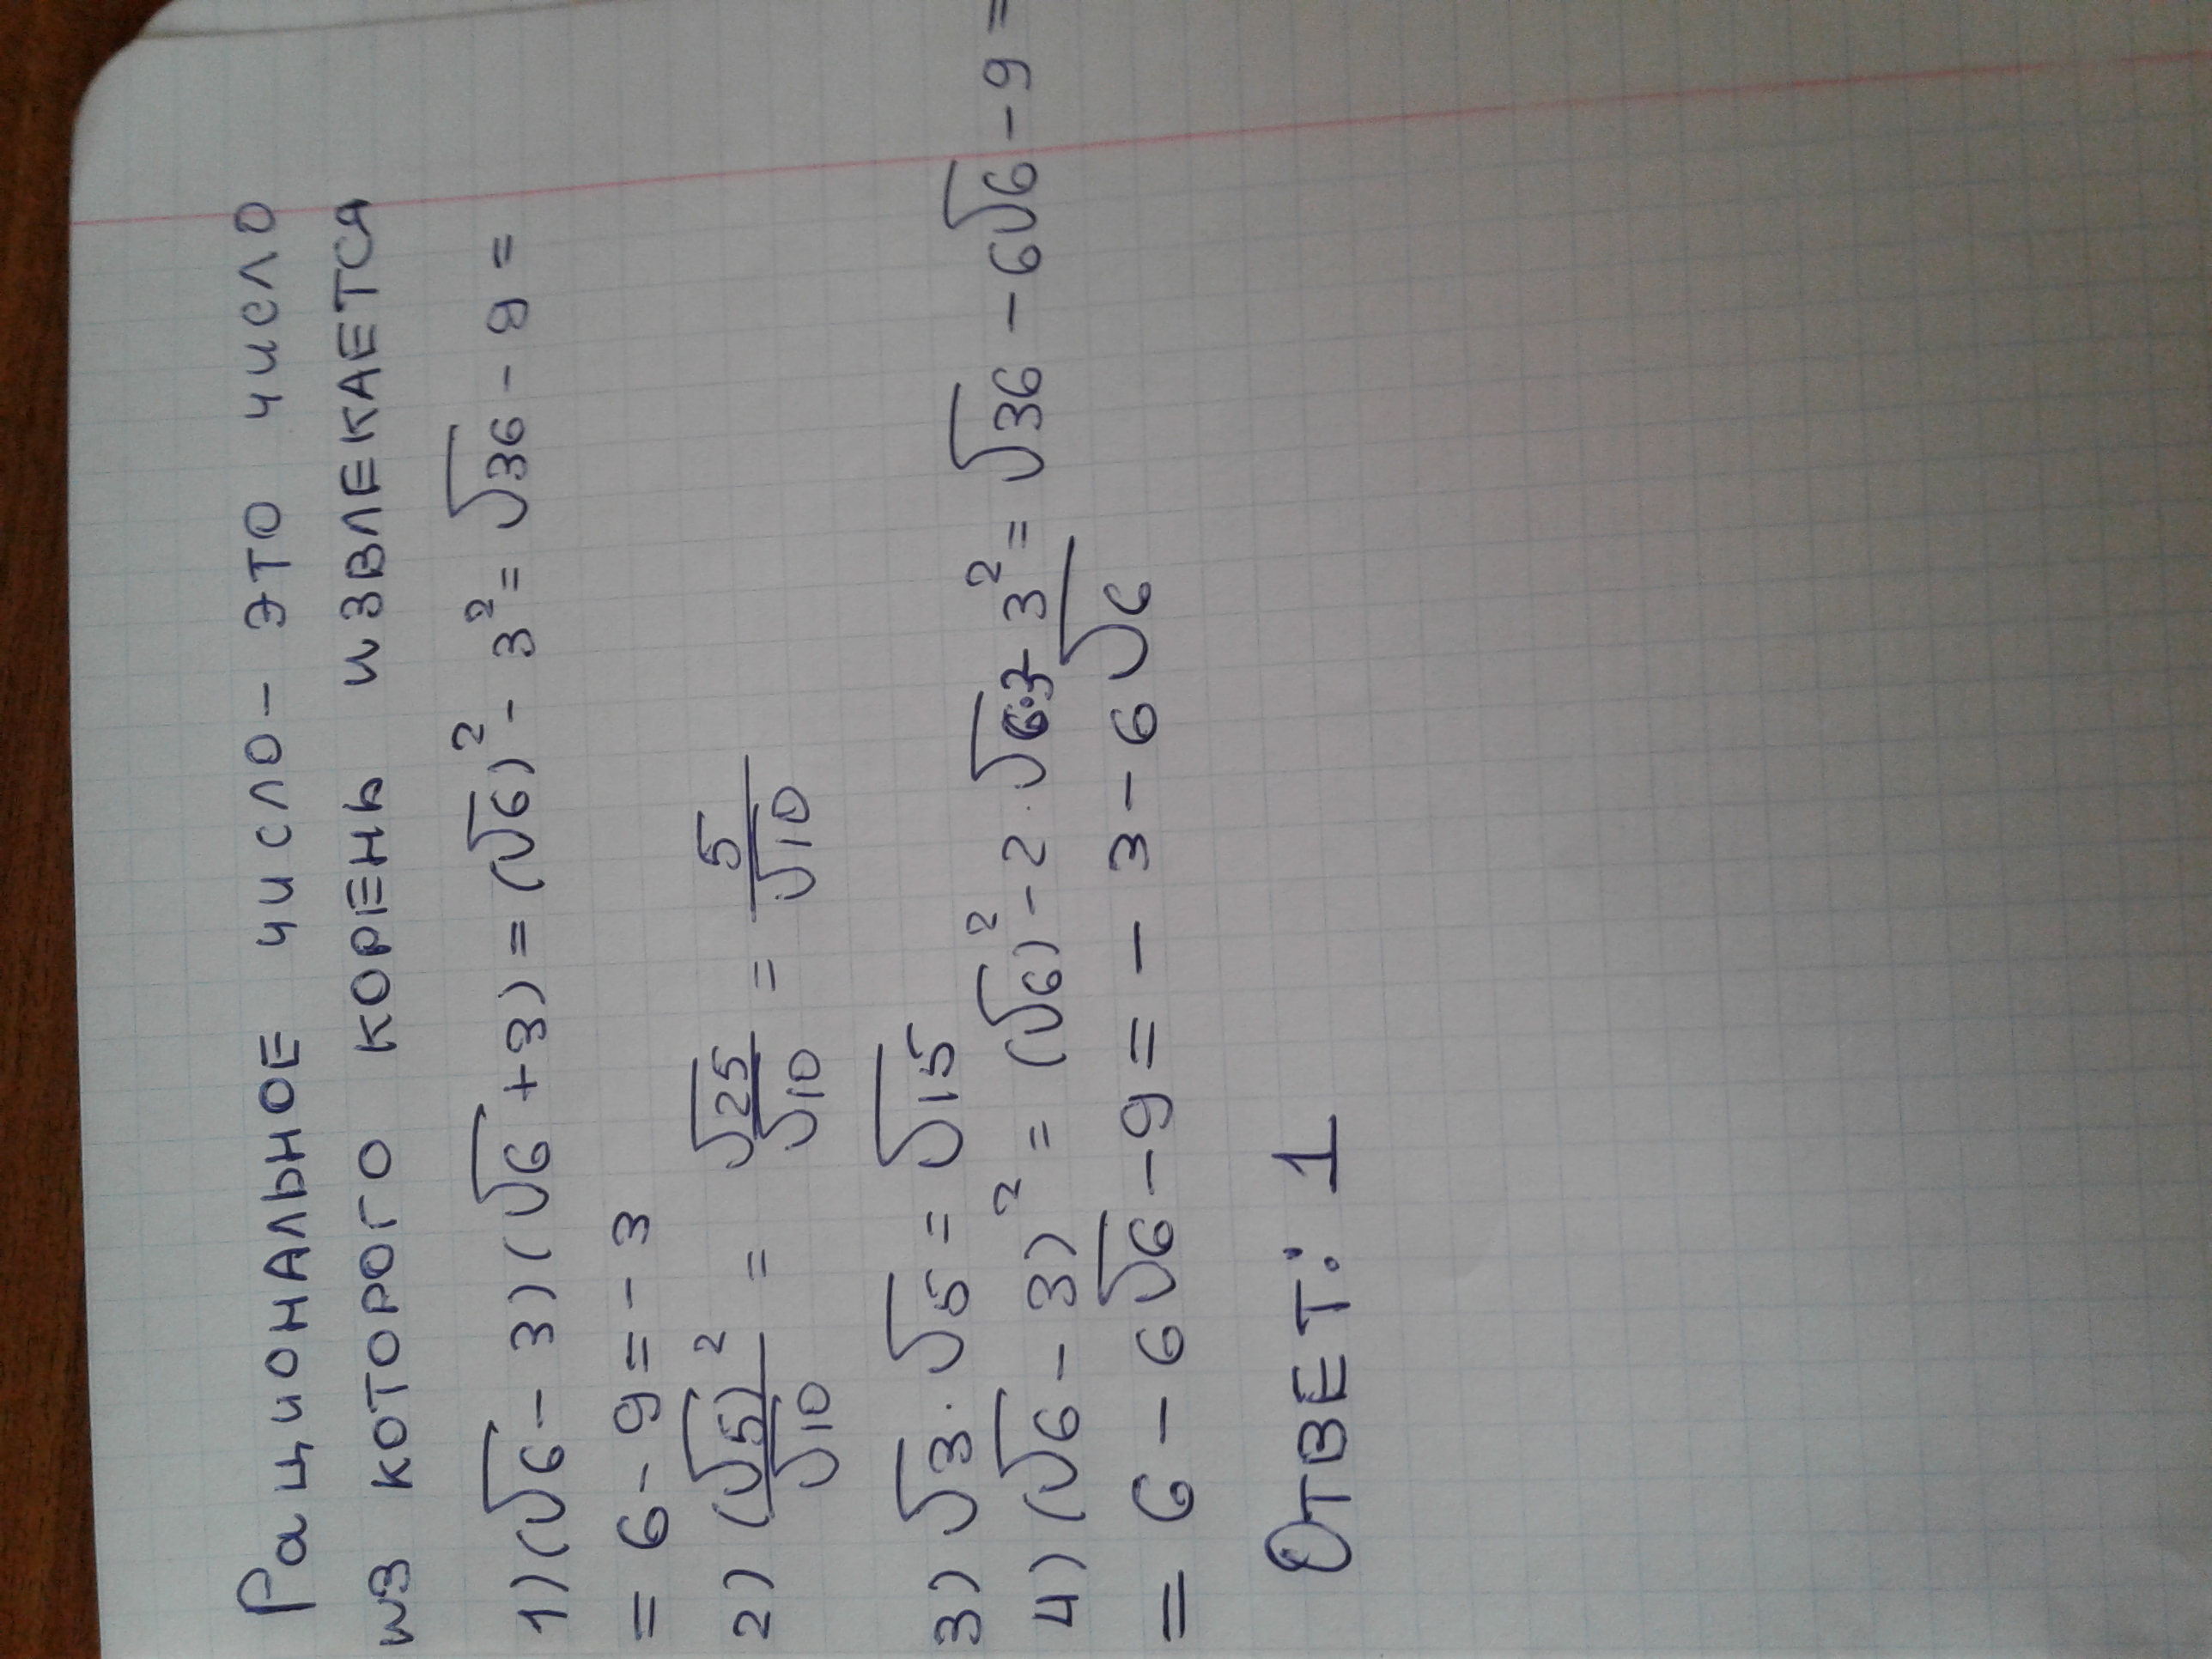 Рациональное число - это число
из которого корень извлекается
1) (√6 - 3)(√6 + 3) = (√6)² - 3² = √36 - 9 =
= 6 - 9 = - 3
2) (√5)²/√10 = √25/√10 = 5/√10
3) √3 · √5 = √15
4) (√6 - 3)² = (√6)² - 2 · √6·3 - 3² = √36 - 6√6 - 9 =
= 6 - 6√6 - 9 = - 3 - 6√6
Ответ: 1